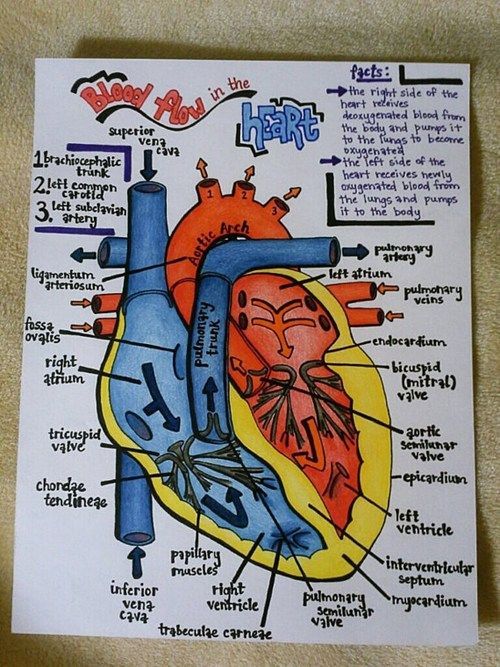 Blood flow in the
HEART
facts:
→ the right side of the
heart receives
deoxygenated blood from
the body and pumps it
to the lungs to become
oxygenated
→ the left side of the
heart receives newly
oxygenated blood from
the lungs and pumps
it to the body
superior
vena
cava
1. brachiocephalic
trunk
2. left common
carotid
3. left subclavian
artery
1
2
3
Aortic Arch
ligamentum
arteriosum
pulmonary
artery
left atrium
pulmonary
veins
fossa
ovalis
pulmonary
trunk
endocardium
right
atrium
bicuspid
(mitral)
valve
tricuspid
valve
aortic
semilunar
valve
chordae
tendineae
epicardium
left
ventricle
papillary
muscles
interventricular
septum
inferior
vena
cava
right
ventricle
pulmonary
semilunar
valve
myocardium
trabeculae carneae